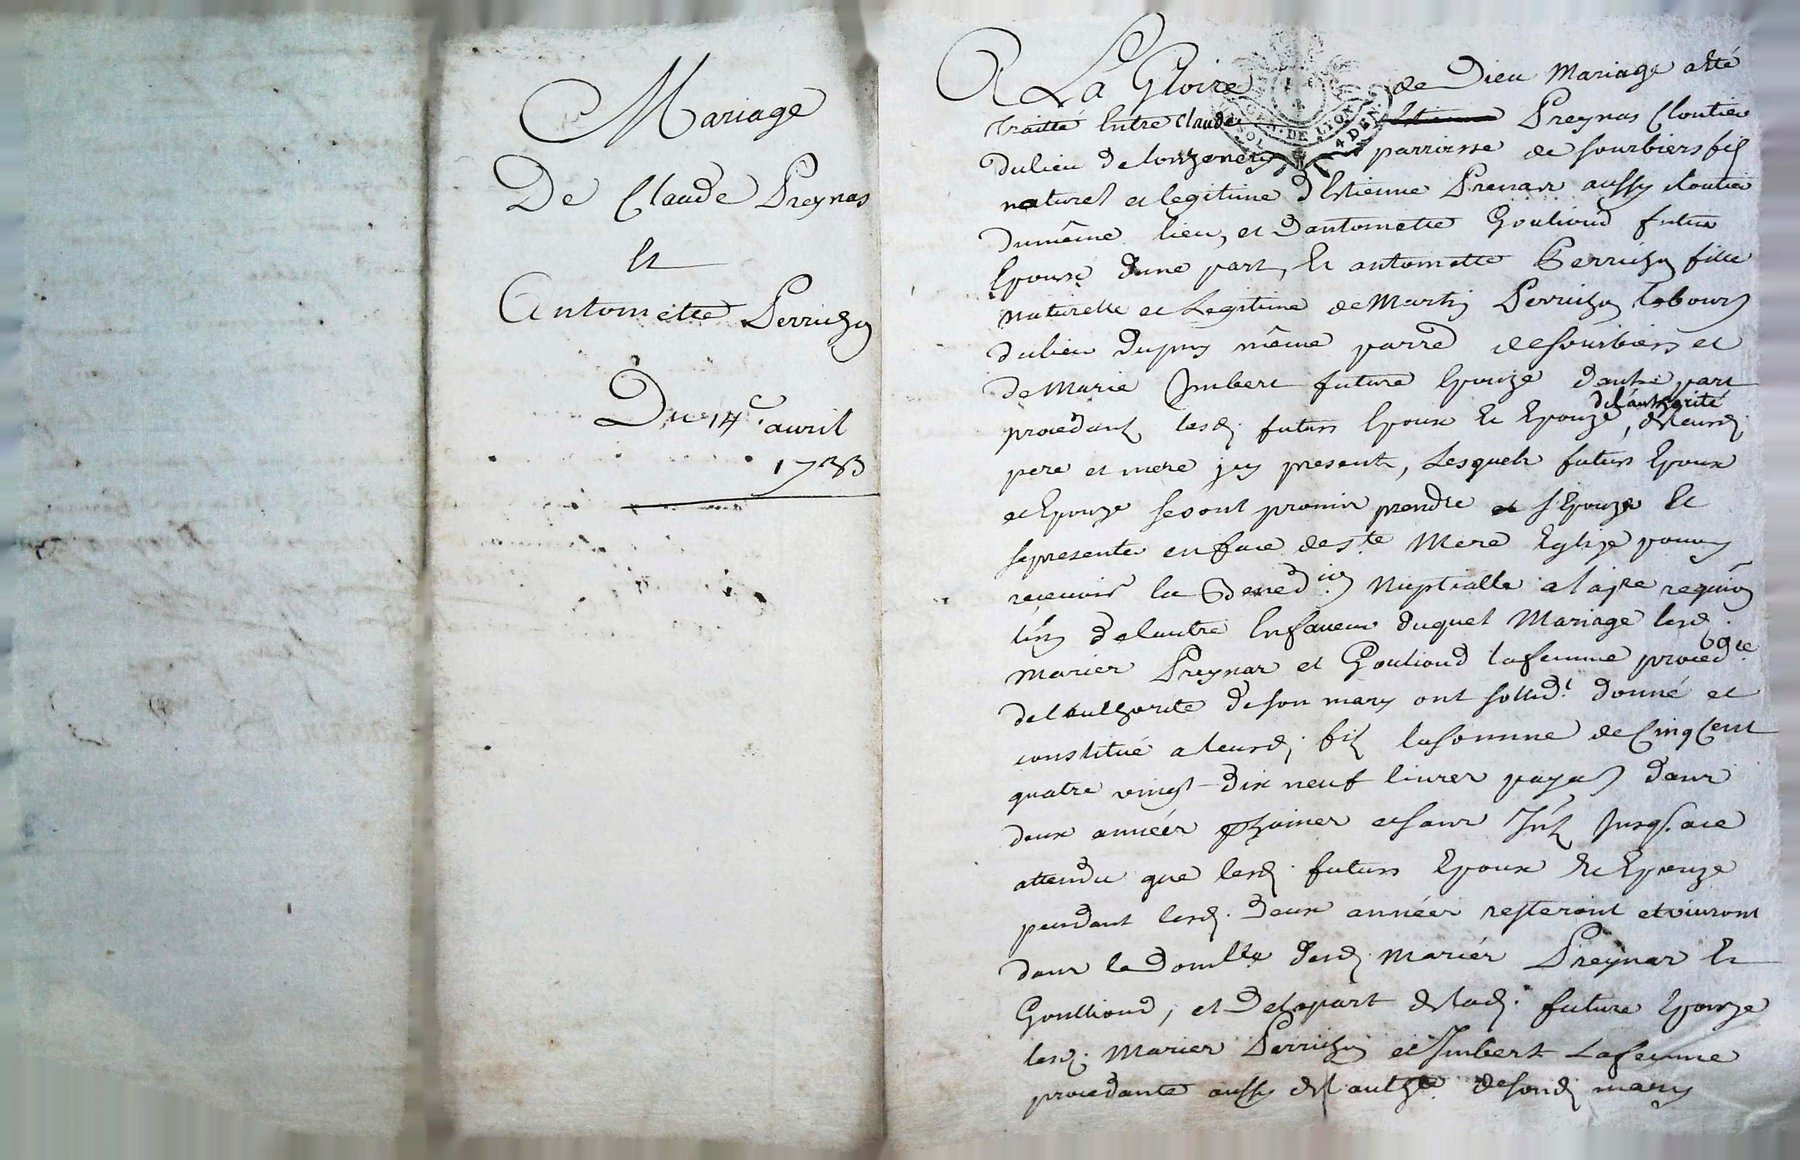 Mariage
De Claude Preynas
Et
Antoinette Perrichon
Du 14e. avril
1733
A La Gloire de Dieu Mariage a esté
traitté Entre Claude Estienne Preynas Cloutier
du lieu de parroisse de sourbiers fils
naturel et legitime d'Estienne Preinas aussy cloutier
du même lieu, et d'antoinette Goutioud futur
Epoux d'une part, Et antoinette Perrichon fille
naturelle et Legitime de Martin Perrichon labour
du lieu dupuy même parre de sourbiers et
de Marie Imbert future Epouze d'autre part
procedants lesd. futurs Epoux Et Epouze, de l'authorité de leursd.
pere et mere icy presents, Lesquels futurs Epoux
et Epouze se sont promis prendre et s'Epouzer Et
se presenter en face de ste. Mere Eglize pour y
recevoir la Bened.on Nuptialle a la pre requion
l'un de l'autre En faveur duquel Mariage lesd.
mariés Preynas et Goutioud la femme proced.te
de l'authorité de son mary ont sollid.t donné et
constitué a leursd. fils la somme de Cinq Cent
quatre vingt dix neuf livres payab dans
deux années et sans Int Jusq. a ce
attendu que lesd. futurs Epoux Et Epouze
pendant lesd. deux années resteront et vivront
dans le domlle desd. mariés Preynas Et
Goutioud, et de la part de lad. future Epouze
lesd. Mariés Perrichon et Imbert La femme
procedante aussy de l'authté. de sond. mary